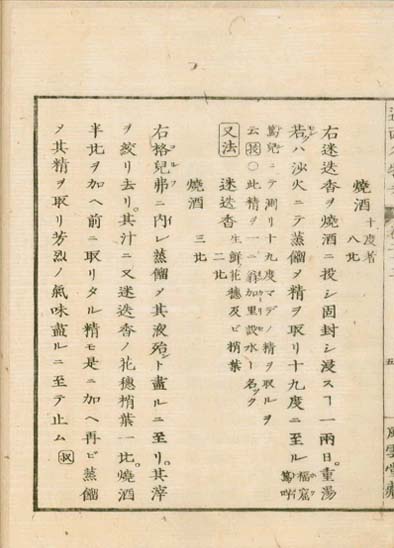 燒酒 十度者 八比
右迷迭香ヲ燒酒ニ投シ固封シ浸スヿ一兩日。重湯
若クハ沙火ニテ蒸餾ノ精ヲ取リ十九度ニ至ル
篤兒ニテ測リ十九度マデノ精ヲ取ルヲ
云 〇此精ヲ一ニ翁加里設水ト名ック
又法 迷迭香 生鮮花穗及ビ梢葉 二比
燒酒 三比
右格兒弗ニ内レ蒸餾ヲ其液殆ント盡ルニ至リ。其滓
ヲ絞リ去リ。其汁ニ又迷迭香ノ花穗梢葉一比。燒酒
半比ヲ加ヘ前ニ取リタル精モ是ニ加ヘ再ビ蒸餾
〆其精ヲ取リ芳烈ノ氣味盡ルニ至テ止ム
五